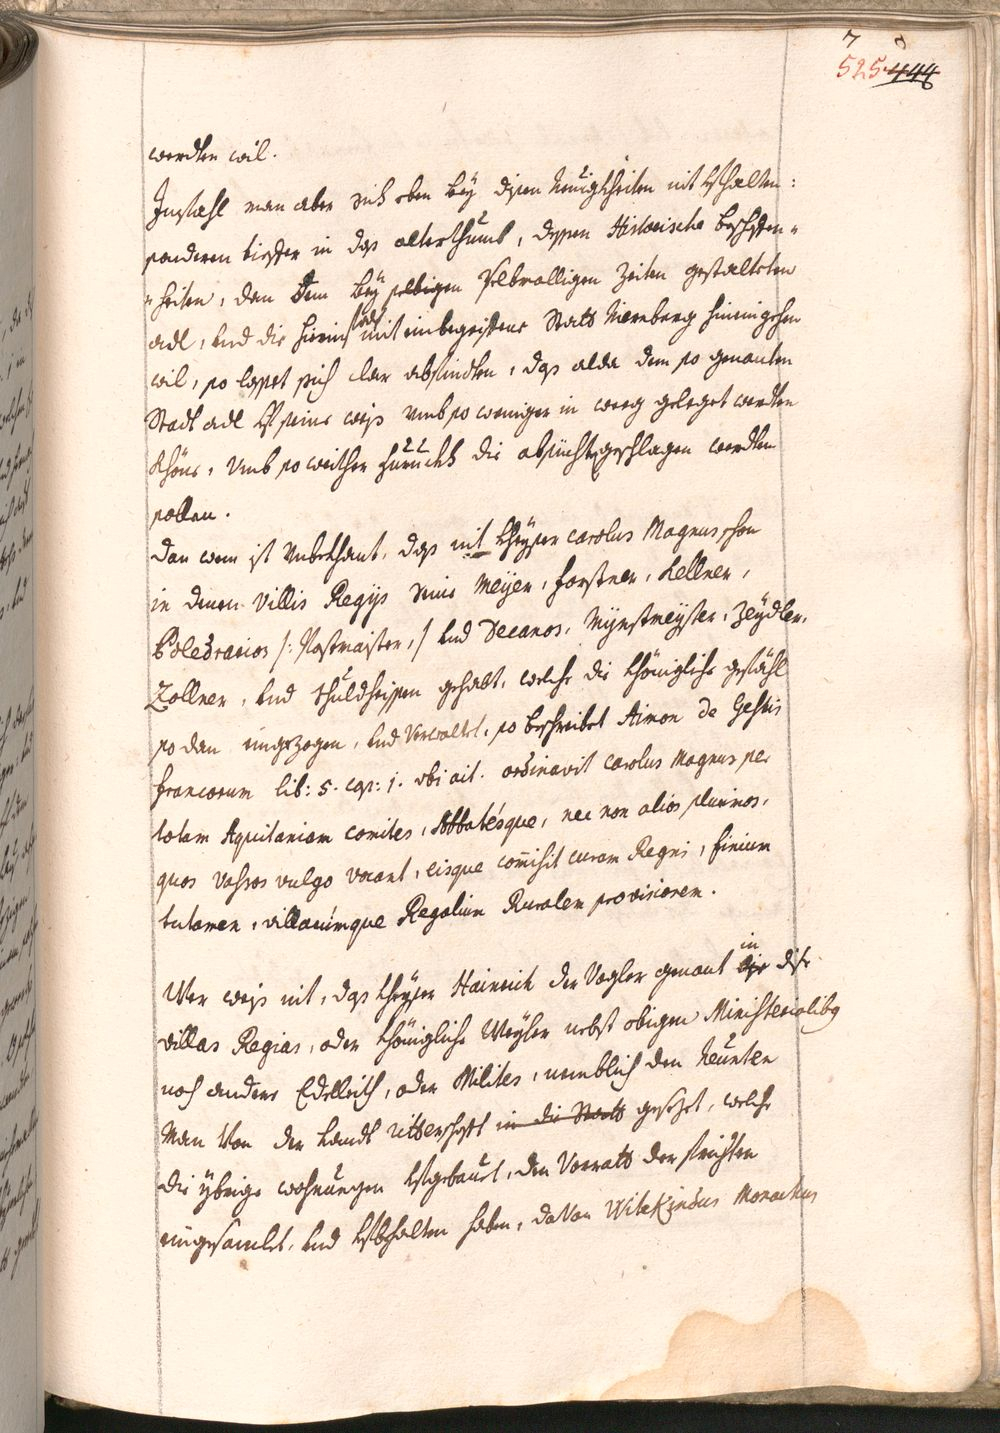 7 8
525 444
werdten wil.
Inpfahl man aber sich oben beÿ disen Neuigkheiten nit aufhalten:
sonderen tieffer in das alterthumb, dessen Historische beschaffen=
=heiten, dan dem beÿ selbigen selbmalligen Zeiten gestalteten
adl, und die hierin mit einbegriffene Statt Niernberg hineingehen
wil, so lasset sich clar abfindten, das alda dem so genanten
Statt adl auf seine weis umb so weniger in weeg geleget werdten
khöne, umb so weither zuruckh die absicht geschlagen werdten
sollen.
Dan wem ist unbekhant, das nit Kheyser Carolus Magnus schon
in denen Villis Regijs seine Meyer, forstner, Kellner,
Poledrarios /: Rossmaister, / und Decanos, Münstmeyster, Zeydler,
Zollner, und schuldheissen gehabt, welche die khönigliche gefähl
so dan eingezogen, und Verwaltet, so beschreibet Aimon de Gestis
francorum lib: 5. cap: 1. ubi ait. ordinavit Carolus Magnus per
totam Aquitaniam comites, Abbatésque, nec non alios plurimos,
quos Vassos vulgo vocant, eisque comisit curam Regni, finium
tutamen, villarúmque Regalium Ruralem provisionem.
Wer weis nit, das Kheyser Hainrich der Vogler genant in dise
villas Regias, oder khönigliche Weyler nebst obigen Ministerialibus
noch andere Edelleith, oder Milites, nemblich den Neunten
Man von der Landt ritterschafft in die Statt gesezet, welche
die ybrige wohnungen aufgebauet, den Vorrath der frichten
eingesamlet, und aufbehalten haben, davon Witekindus Monachus